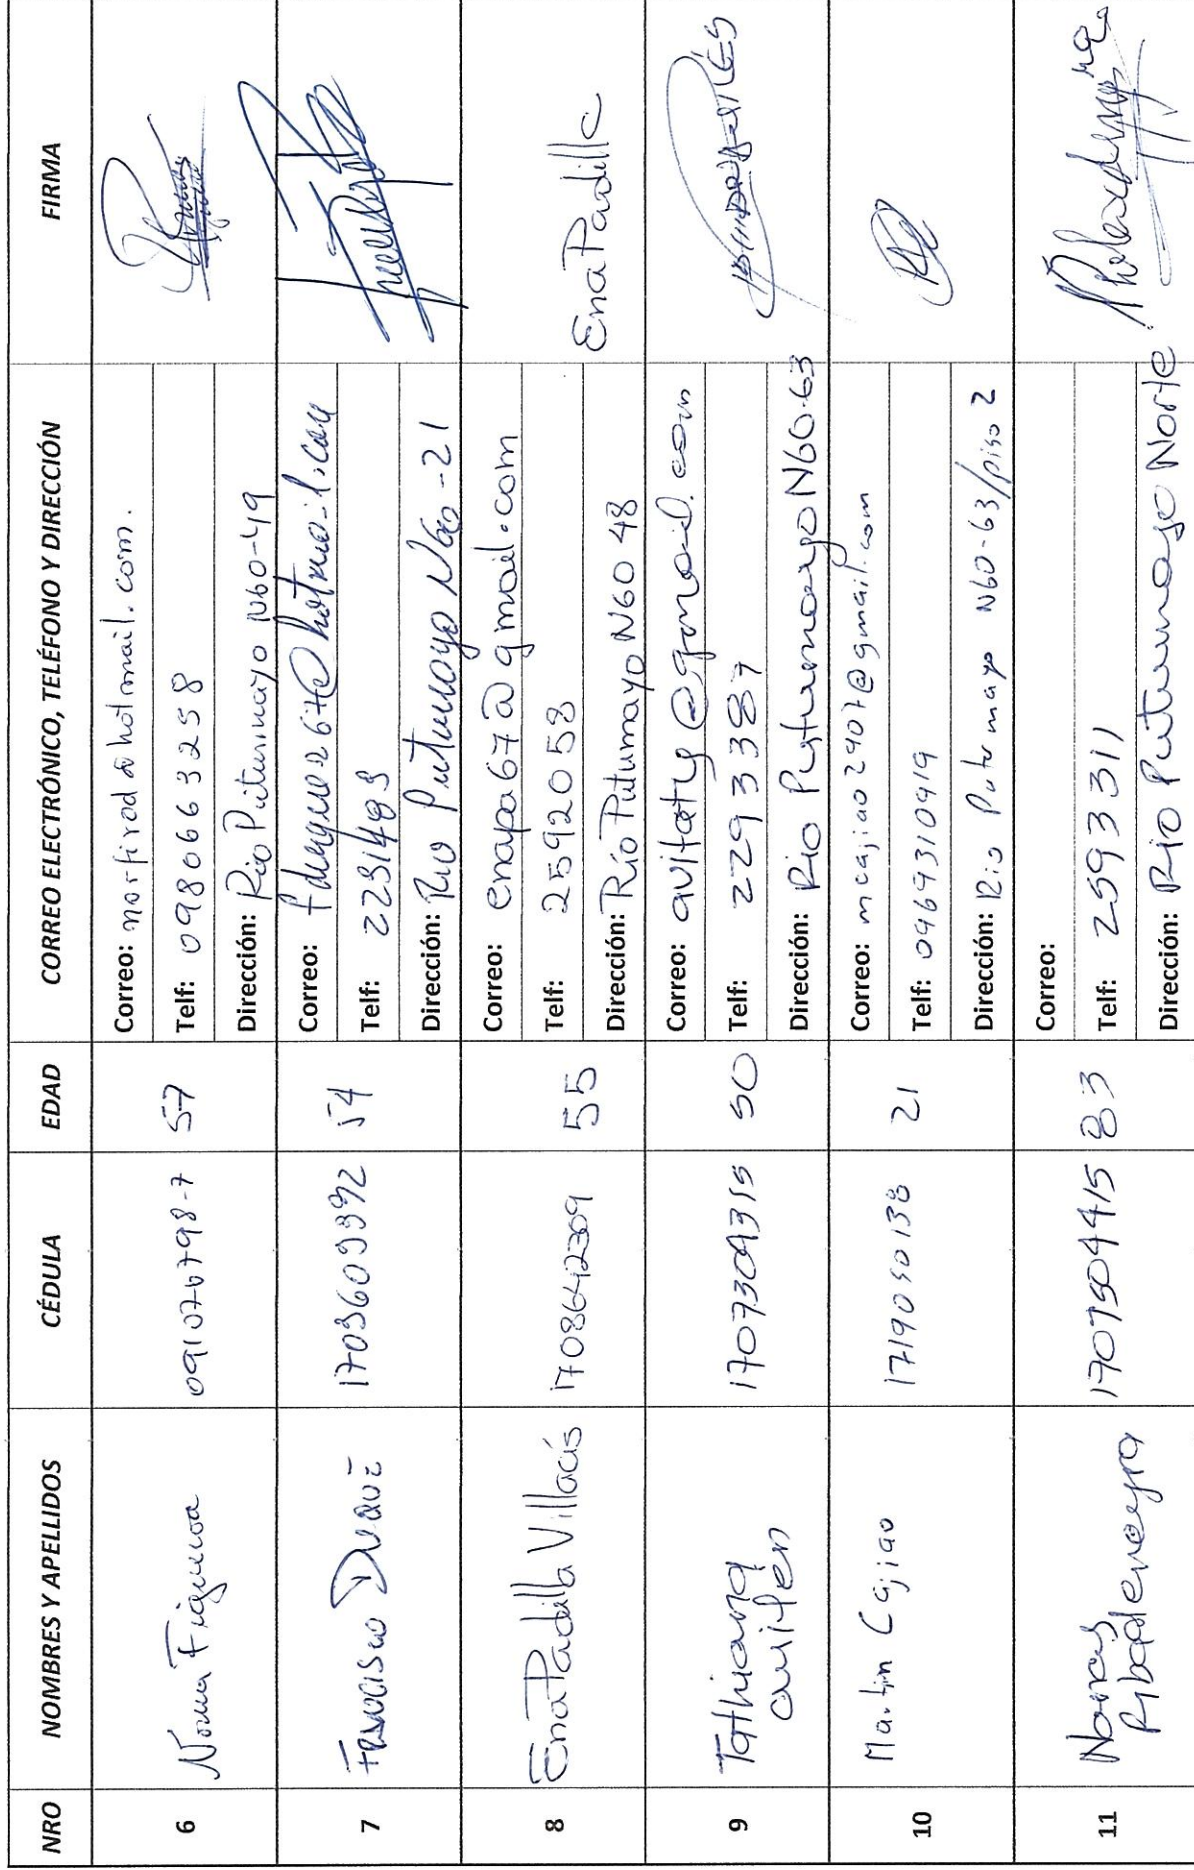 NRO NOMBRES Y APELLIDOS CÉDULA EDAD CORREO ELECTRÓNICO, TELÉFONO Y DIRECCIÓN FIRMA
6 Norma Figueroa 091076798-7 57
Correo: norfirod@hotmail.com.
Telf: 0980663258
Dirección: Río Putumayo N60-49
7 FRANCISCO DUQUE 1703609392 54
Correo: fduque267@hotmail.com
Telf: 2231493
Dirección: Río Putumayo N60-21
8 Ena Padilla Villacís 1708642309 55
Correo: enapa67@gmail.com
Telf: 2592058
Dirección: Río Putumayo N60 48
Ena Padilla
9 Tathiana
Avilés 1707304315 50
Correo: avitaty@gmail.com
Telf: 2293387
Dirección: Rio Putumayo N60-63
10 Martin Cajiao 1719050138 21
Correo: mcajiao2907@gmail.com
Telf: 0969310919
Dirección: Rio Putumayo N60-63/piso 2
11 Narcis
Ribadeneyra 1707504415 83
Correo:
Telf: 2593311
Dirección: Rio Putumayo Norte